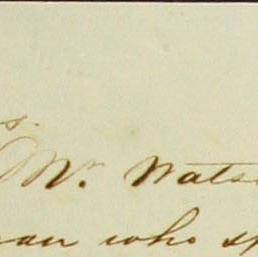 s.
Mr. Wats
an who s